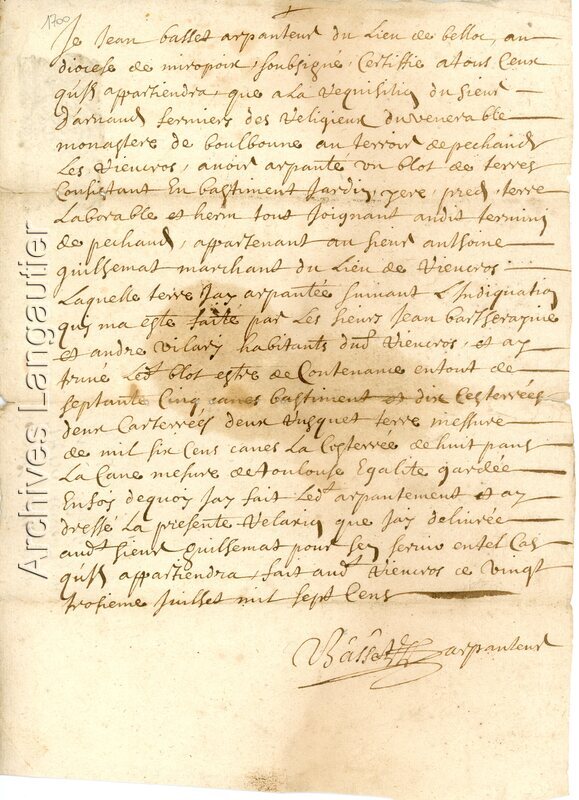 1700
Je Jean basset arpanteur du Lieu de belloc, au
diocese de miropoix, soubsigné, Certiffie a tous Ceux
qu'il appartiendra, que a la requisition du sieur
d'arnaud fermier des religieux du venerable
monastere de boulbonne au terroir de pechaud
Les Viencros, avoir arpanté un blot de terres
Consistant En bastiment Jardin, yere, pred, terre
Laborable et herm tout Joignant audit
de pechaud, appartenant au sieur anthoine
guilhemat marchant du Lieu de Viencros
Laquelle terre Jay arpantée suivant L'Indiquation
quy ma esté faite par Les sieurs Jean
et andre vilary habitants dud. Viencros, et ay
truné Led. blot estre de Contenance en tout de
septante Cinq canes bastiment et dix Cesterrées
deux Carterrées deux terre messure
de mil six Cens canes La Cesterrée de huit pans
La Cane mesure de toulouse Egalité gardée
En foy dequoy Jay fait Led. arpantement et ay
dressé La presente relation que Jay delivrée
aud. sieur guilhemat pour sen servir en tel Cas
qu'il appartiendra, fait aud. Viencros ce vingt
troisieme Juillet mil sept Cens
Basset arpanteur
Archives Langautier